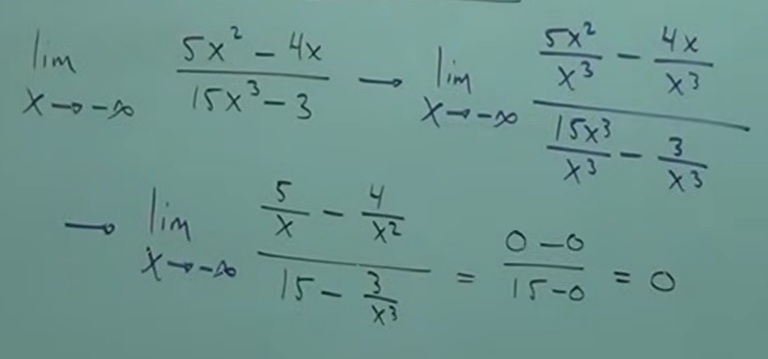 lim x→-∞ (5x² - 4x)/(15x³ - 3) → lim x→-∞ (5x²/x³ - 4x/x³)/(15x³/x³ - 3/x³)
→ lim x→-∞ (5/x - 4/x²)/(15 - 3/x³) = (0 - 0)/(15 - 0) = 0